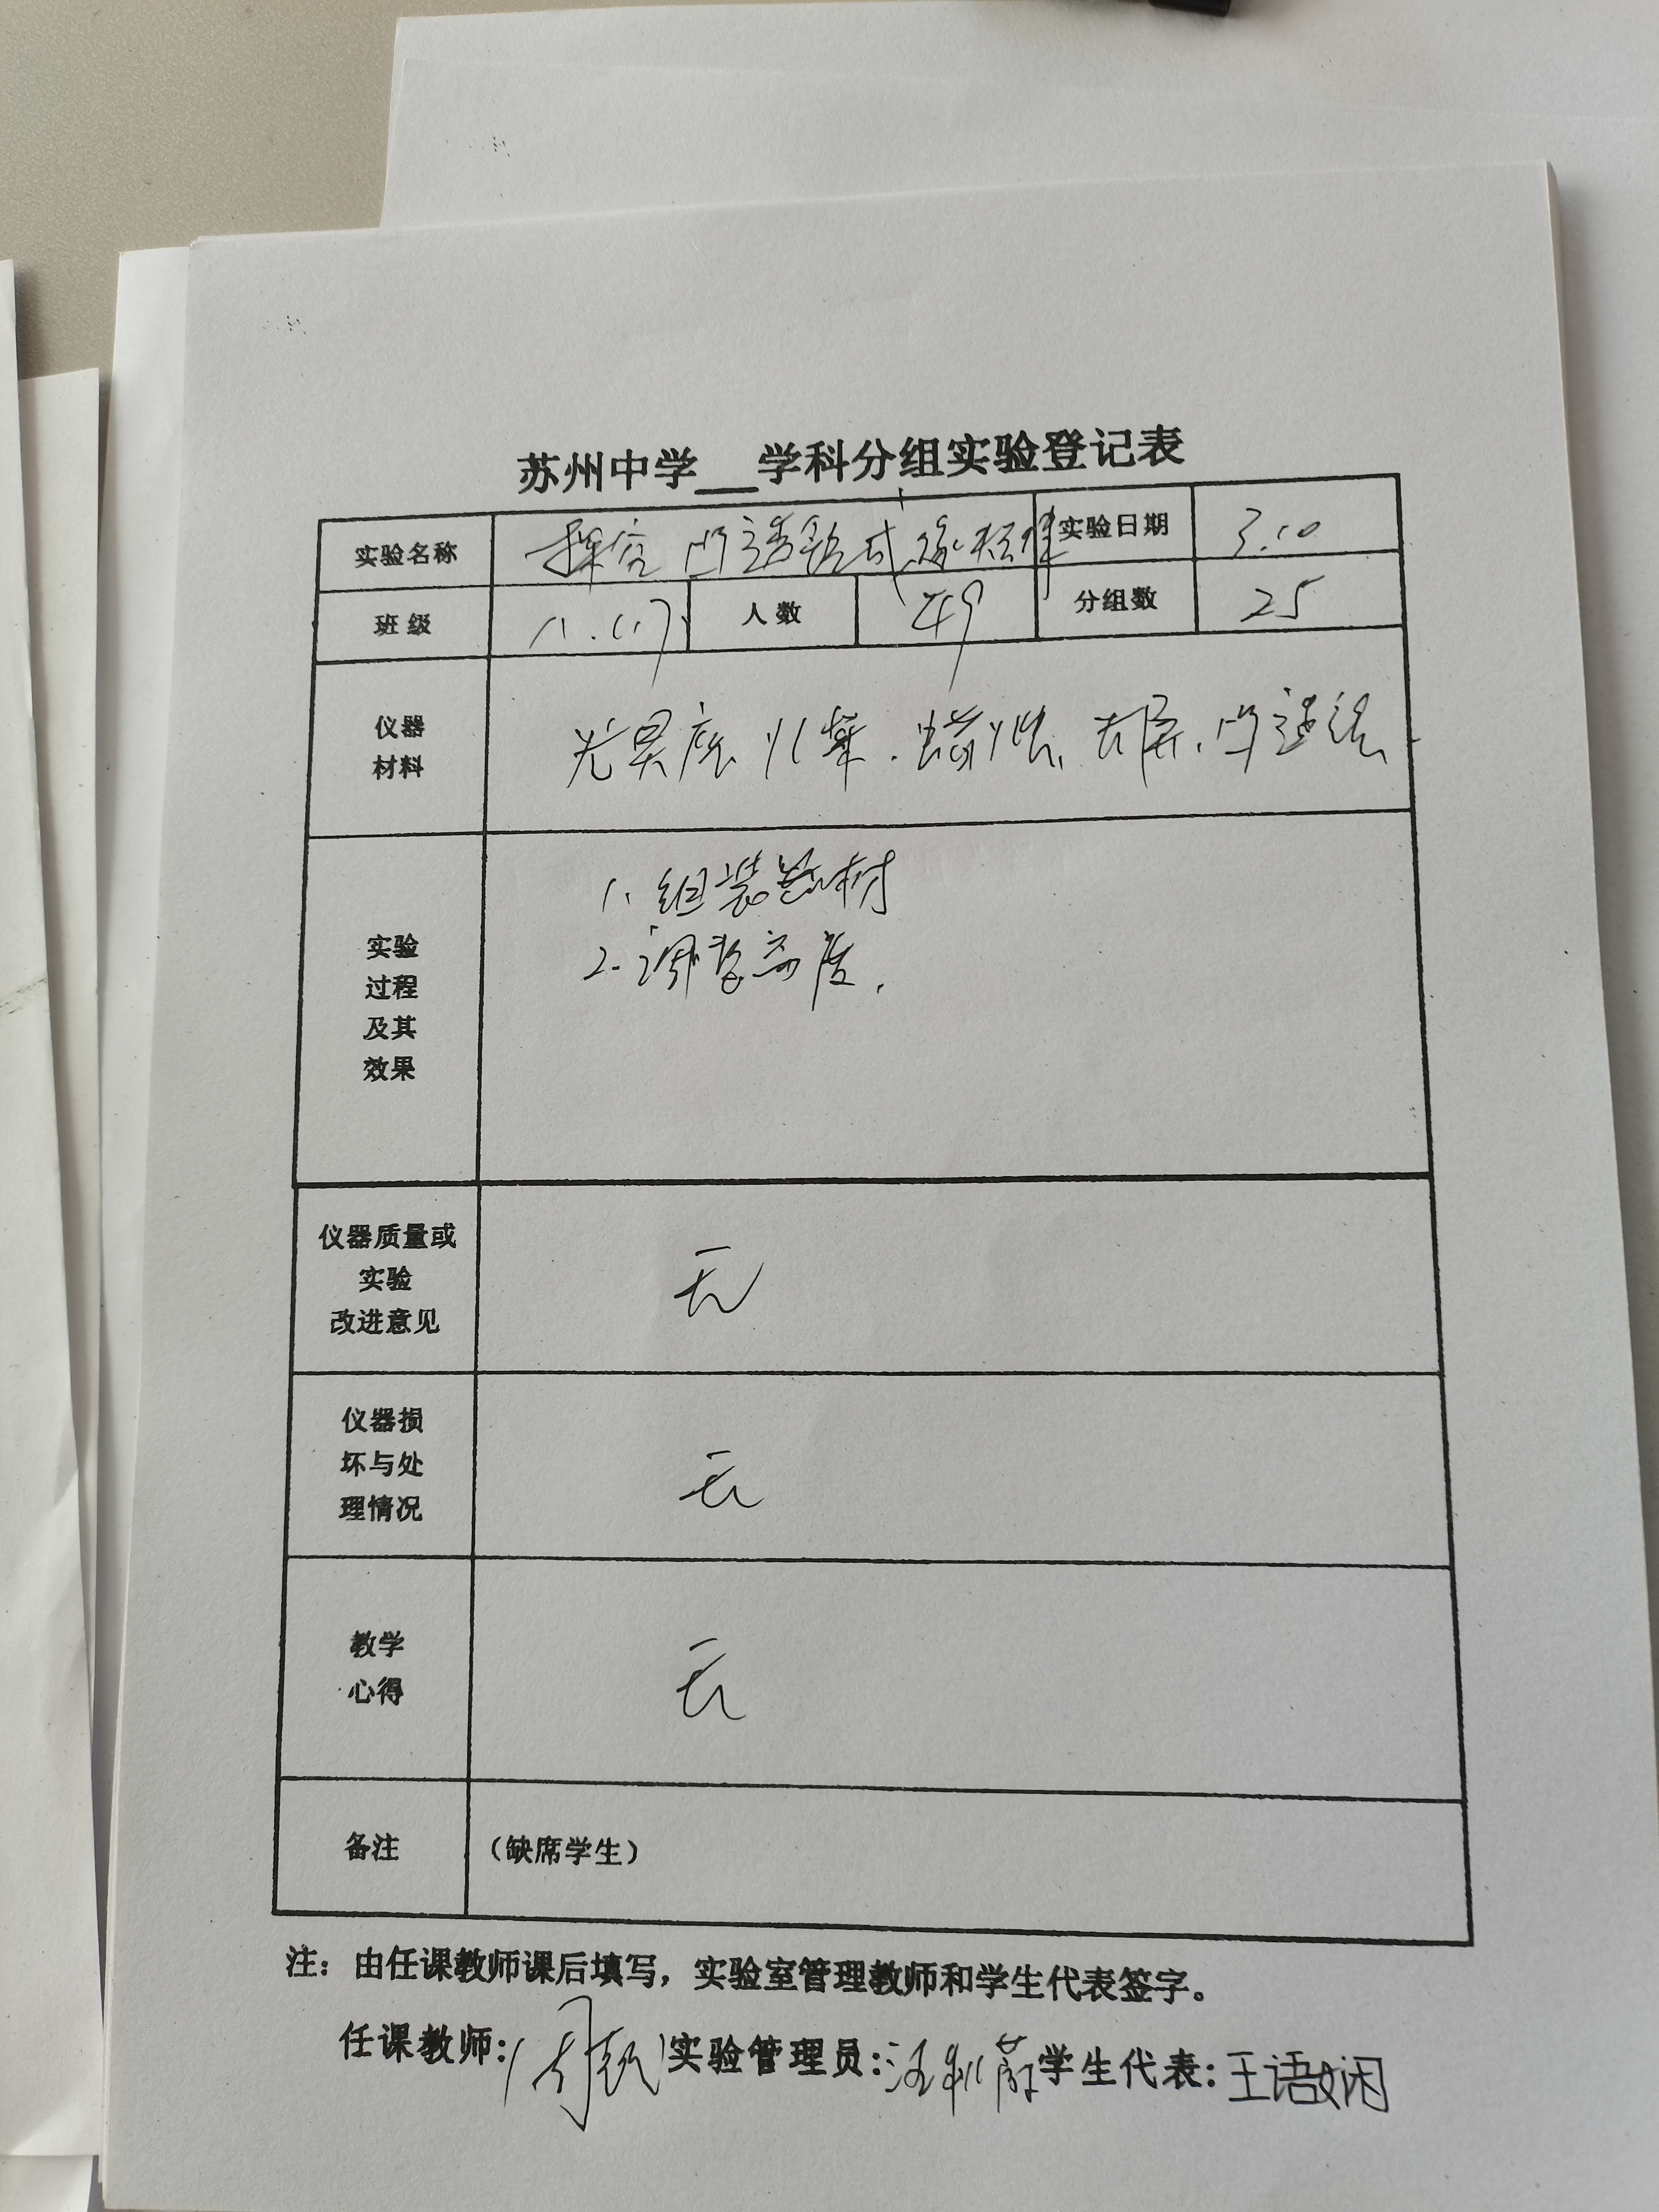 苏州中学__学科分组实验登记表
实验名称 探究凸透镜成像规律 实验日期 3.10
班级 八.(17) 人数 49 分组数 25
仪器
材料
光具座、火柴、蜡烛、光屏、凸透镜
实验
过程
及其
效果
1、组装器材
2、调整高度.
仪器质量或
实验
改进意见
无
仪器损
坏与处
理情况
无
教学
心得
无
备注 (缺席学生)
注：由任课教师课后填写，实验室管理教师和学生代表签字。
任课教师: 实验管理员: 学生代表: 王语娴